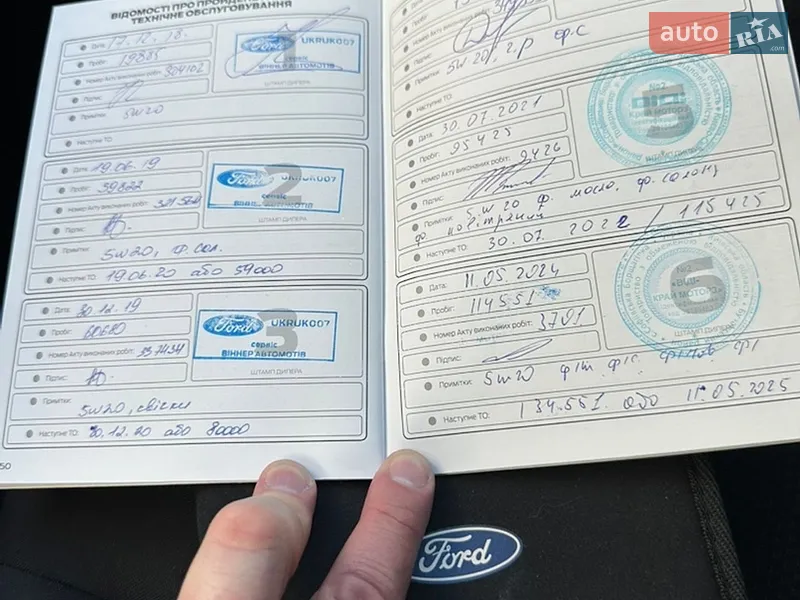 ВІДОМОСТІ ПРО
ТЕХНІЧНЕ ОБСЛУГОВУВАННЯ
Дата: 17.12.18.
Пробіг: 19885
Номер Акту виконаних робіт: 304102
Підпис:
Примітки: 5w20
Наступне ТО:
1
Ford UKRUK007
сервіс
ВІННЕР АВТОМОТІВ
ШТАМП ДИЛЕРА
Дата: 19.06.19
Пробіг: 39822
Номер Акту виконаних робіт:
Підпис:
Примітки: 5w20, ф. сал.
Наступне ТО: 19.06.20 або 59000
2
Ford UKRUK007
сервіс
ВІННЕР АВТОМОТІВ
ШТАМП ДИЛЕРА
Дата: 30.12.19
Пробіг: 60610
Номер Акту виконаних робіт: 337434
Підпис:
Примітки: 5w20, свічки
Наступне ТО: 30.12.20 або 80000
3
Ford UKRUK007
сервіс
ВІННЕР АВТОМОТІВ
ШТАМП ДИЛЕРА
50
Номер Акту виконаних робіт:
Підпис:
Примітки: 5w20, г.р ф.с
Наступне ТО:
Дата: 30.07.2021
Пробіг: 95425
Номер Акту виконаних робіт: 9426
Підпис:
Примітки: 5w20 ф. масло, ф. салону
ф. повітряний
Наступне ТО: 30.07.2022 / 115425
5
№2
КРАЙ МОТОРЗ
ШТАМП ДИЛЕРА
Дата: 11.05.2024
Пробіг: 114551
Номер Акту виконаних робіт: 3791
Підпис:
Примітки: 5w20 ф/м ф/с ф/п
Наступне ТО: 134.551 або 11.05.2025
6
№2
КРАЙ МОТОРЗ
ШТАМП ДИЛЕРА
auto RIA .com
Ford